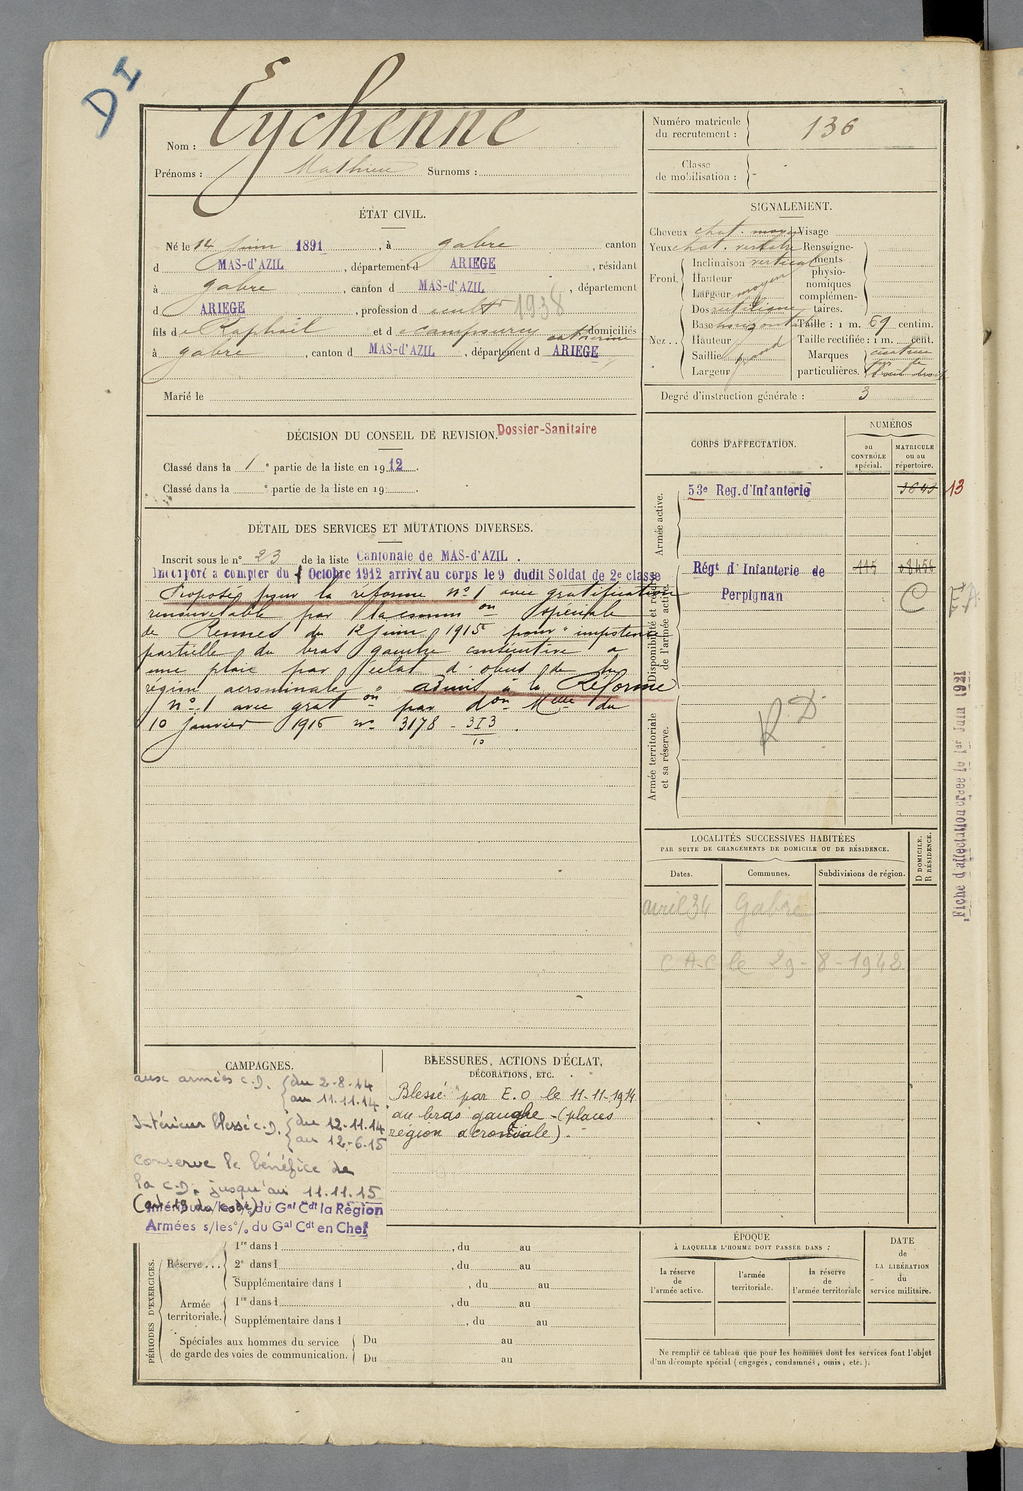 DI
Nom : Eychenne
Prénoms : Mathieu Surnoms :
Numéro matricule du recrutement : 136
Classe de mobilisation : -
ÉTAT CIVIL.
Né le 14 Juin 1891, à gabre canton
d MAS-d'AZIL, département d ARIEGE, résidant
à gabre, canton d MAS-d'AZIL, département
d ARIEGE, profession d cultr 1938
fils de Raphaël et de campsurcy catherine domiciliés
à gabre, canton d MAS-d'AZIL, département d ARIEGE
Marié le
SIGNALEMENT.
Cheveux chat. moyen
Yeux chat. verdatre
Front.
Inclinaison vertical
Hauteur
Largeur moyen
Nez..
Dos rectiligne
Base horizontale
Hauteur
Saillie grand
Largeur
Visage
Renseignements physionomiques complémentaires.
Taille : 1 m. 69 centim.
Taille rectifiée : 1 m. cent.
Marques particulières. cicatrice
Degré d'instruction générale : 3
DÉCISION DU CONSEIL DE REVISION. Dossier-Sanitaire
Classé dans la 1e partie de la liste en 1912.
Classé dans la e partie de la liste en 19 .
CORPS D'AFFECTATION.
NUMÉROS
au CONTRÔLE spécial.
MATRICULE ou au répertoire.
Armée active.
53e Reg. d'Infanterie 13
Disponibilité et réserve de l'armée active.
Régt d'Infanterie de Perpignan
C
Armée territoriale et sa réserve.
RD
Fiche d'affectation créée le 1er Juin 1921
DÉTAIL DES SERVICES ET MUTATIONS DIVERSES.
Inscrit sous le n° 23 de la liste Cantonale de MAS-d'AZIL.
Incorporé a compter du 1 Octobre 1912 arrivé au corps le 9 dudit Soldat de 2e classe
Proposé pour la reforme n° 1 avec gratification
renouvelable par la comm on spéciale
de Rennes du 12 Juin 1915 pour "impotence
partielle du bras gauche consécutive a
une plaie par éclat d'obus de la
région acrominale" admis à la Réforme
n° 1 avec grat on par don Melle du
10 janvier 1916 no 3178 - 3I3
10
LOCALITÉS SUCCESSIVES HABITÉES
PAR SUITE DE CHANGEMENTS DE DOMICILE OU DE RÉSIDENCE.
Dates. Communes. Subdivisions de région. D DOMICILE. R RÉSIDENCE.
avril 34 Gabre
C A-C le 29-8-1942
CAMPAGNES.
aux armées C.D. {du 2-8-14
au 11.11.14
Intérieur blessé C.D. {du 12-11.14
au 12-6.15
conserve le bénéfice de
la C.D. jusqu'au 11.11.15
(art 13 du code)
Intérieur s/les % du Gal Cdt la Région
Armées s/les % du Gal Cdt en Chef
BLESSURES, ACTIONS D'ÉCLAT,
DÉCORATIONS, ETC.
Blessé par E.O le 11-11-1914
au bras gauche - (places
région acromiale).-
PÉRIODES D'EXERCICES.
Réserve...
1re dans l , du au
2e dans l , du au
Supplémentaire dans l , du au
Armée territoriale.
1re dans l , du au
Supplémentaire dans l , du au
Spéciales aux hommes du service
de garde des voies de communication.
Du au
Du au
ÉPOQUE
À LAQUELLE L'HOMME DOIT PASSER DANS :
la réserve de l'armée active.
l'armée territoriale.
la réserve de l'armée territoriale
DATE
de
LA LIBÉRATION
du
service militaire.
Ne remplir ce tableau que pour les hommes dont les services font l'objet
d'un décompte spécial (engagés, condamnés, omis, etc.).